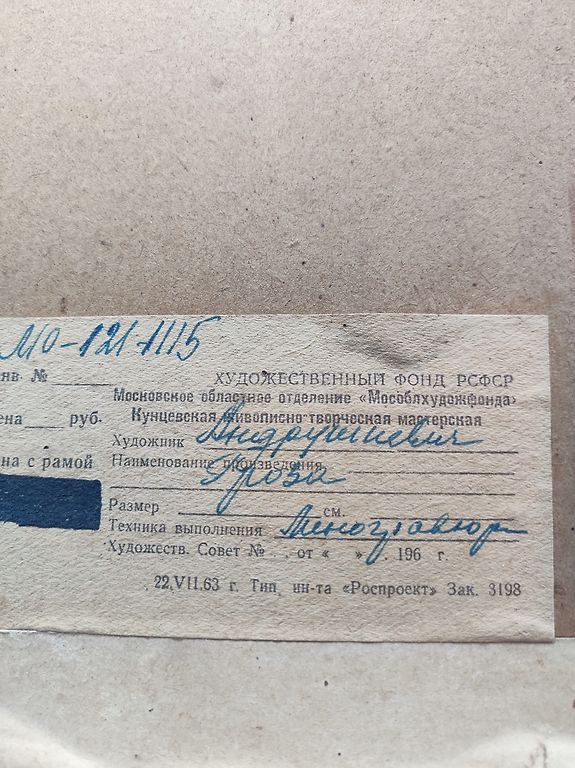 МО-121-1115
нв №
ХУДОЖЕСТВЕННЫЙ ФОНД РСФСР
Московское областное отделение «Мособлхудожфонда»
ена ___ руб.
Кунцевская живописно-творческая мастерская
Художник Андрушкевич
на с рамой
Наименование произведения
Гроза
Размер ___ см.
Техника выполнения
Художеств. Совет № . . от « » . 196 г.
22.VII.63 г. Тип. ин-та «Роспроект» Зак. 3198